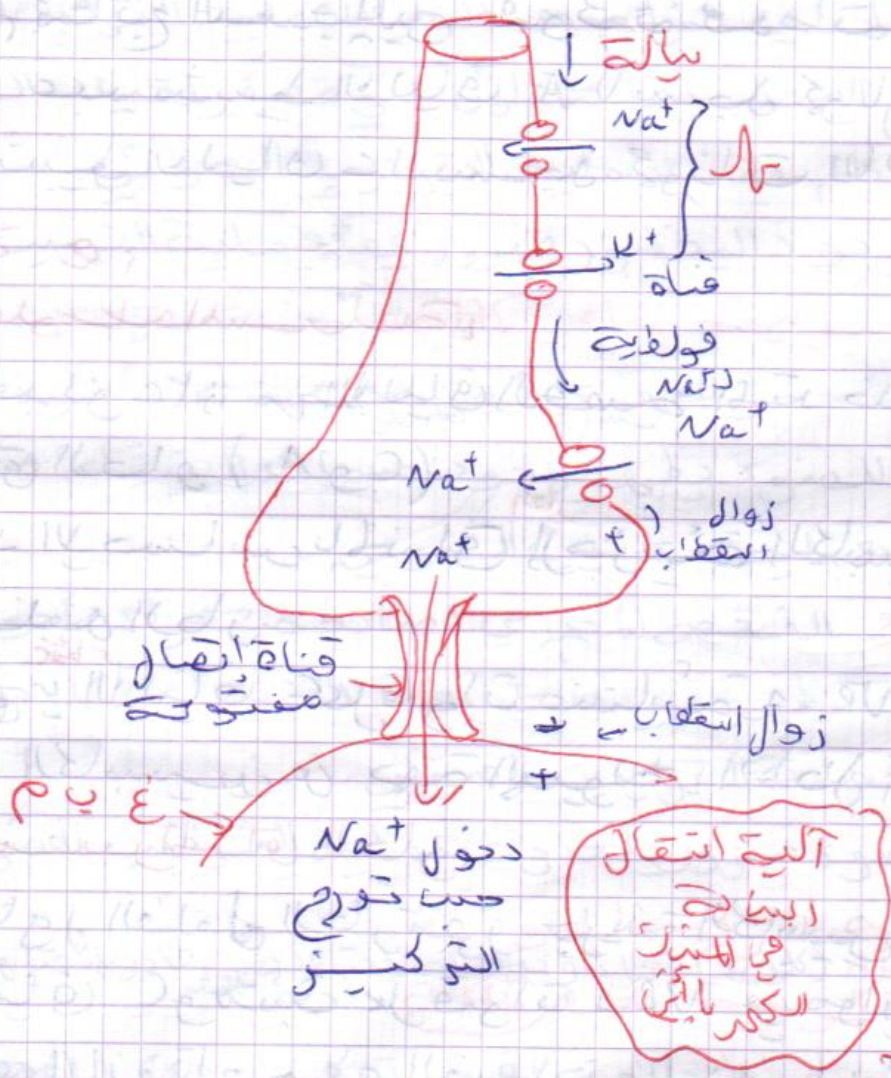 سيالة
Na⁺
K⁺
قناة
فولطية
Na⁺
Na⁺
Na⁺
زوال
استقطاب
+
قناة إتصال
مفتوحة
زوال استقطاب
-
+
غ ب م
دخول Na⁺
حسب تدرج
التركيز
آلية انتقال
الرسالة
في المشبك
الكهربائي